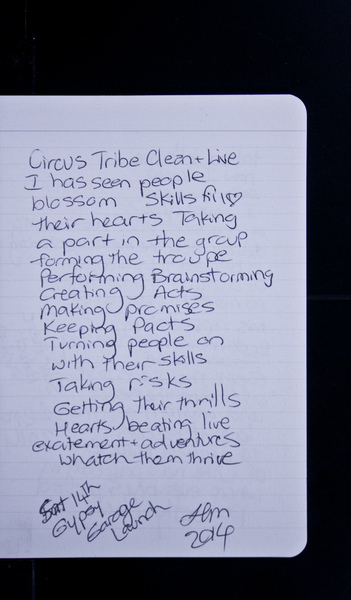 Circus Tribe Clean + Live
I has seen people
blossom Skills fill♡
their hearts Taking
a part in the group
forming the troupe
Performing Brainstorming
Creating Acts
Making promises
Keeping Pacts
Turning people on
with their skills
Taking risks
Getting their thrills
Hearts beating live
excitement + adventures
whatch them thrive
Sat 14th
Gypsy
Garage
Launch
2014